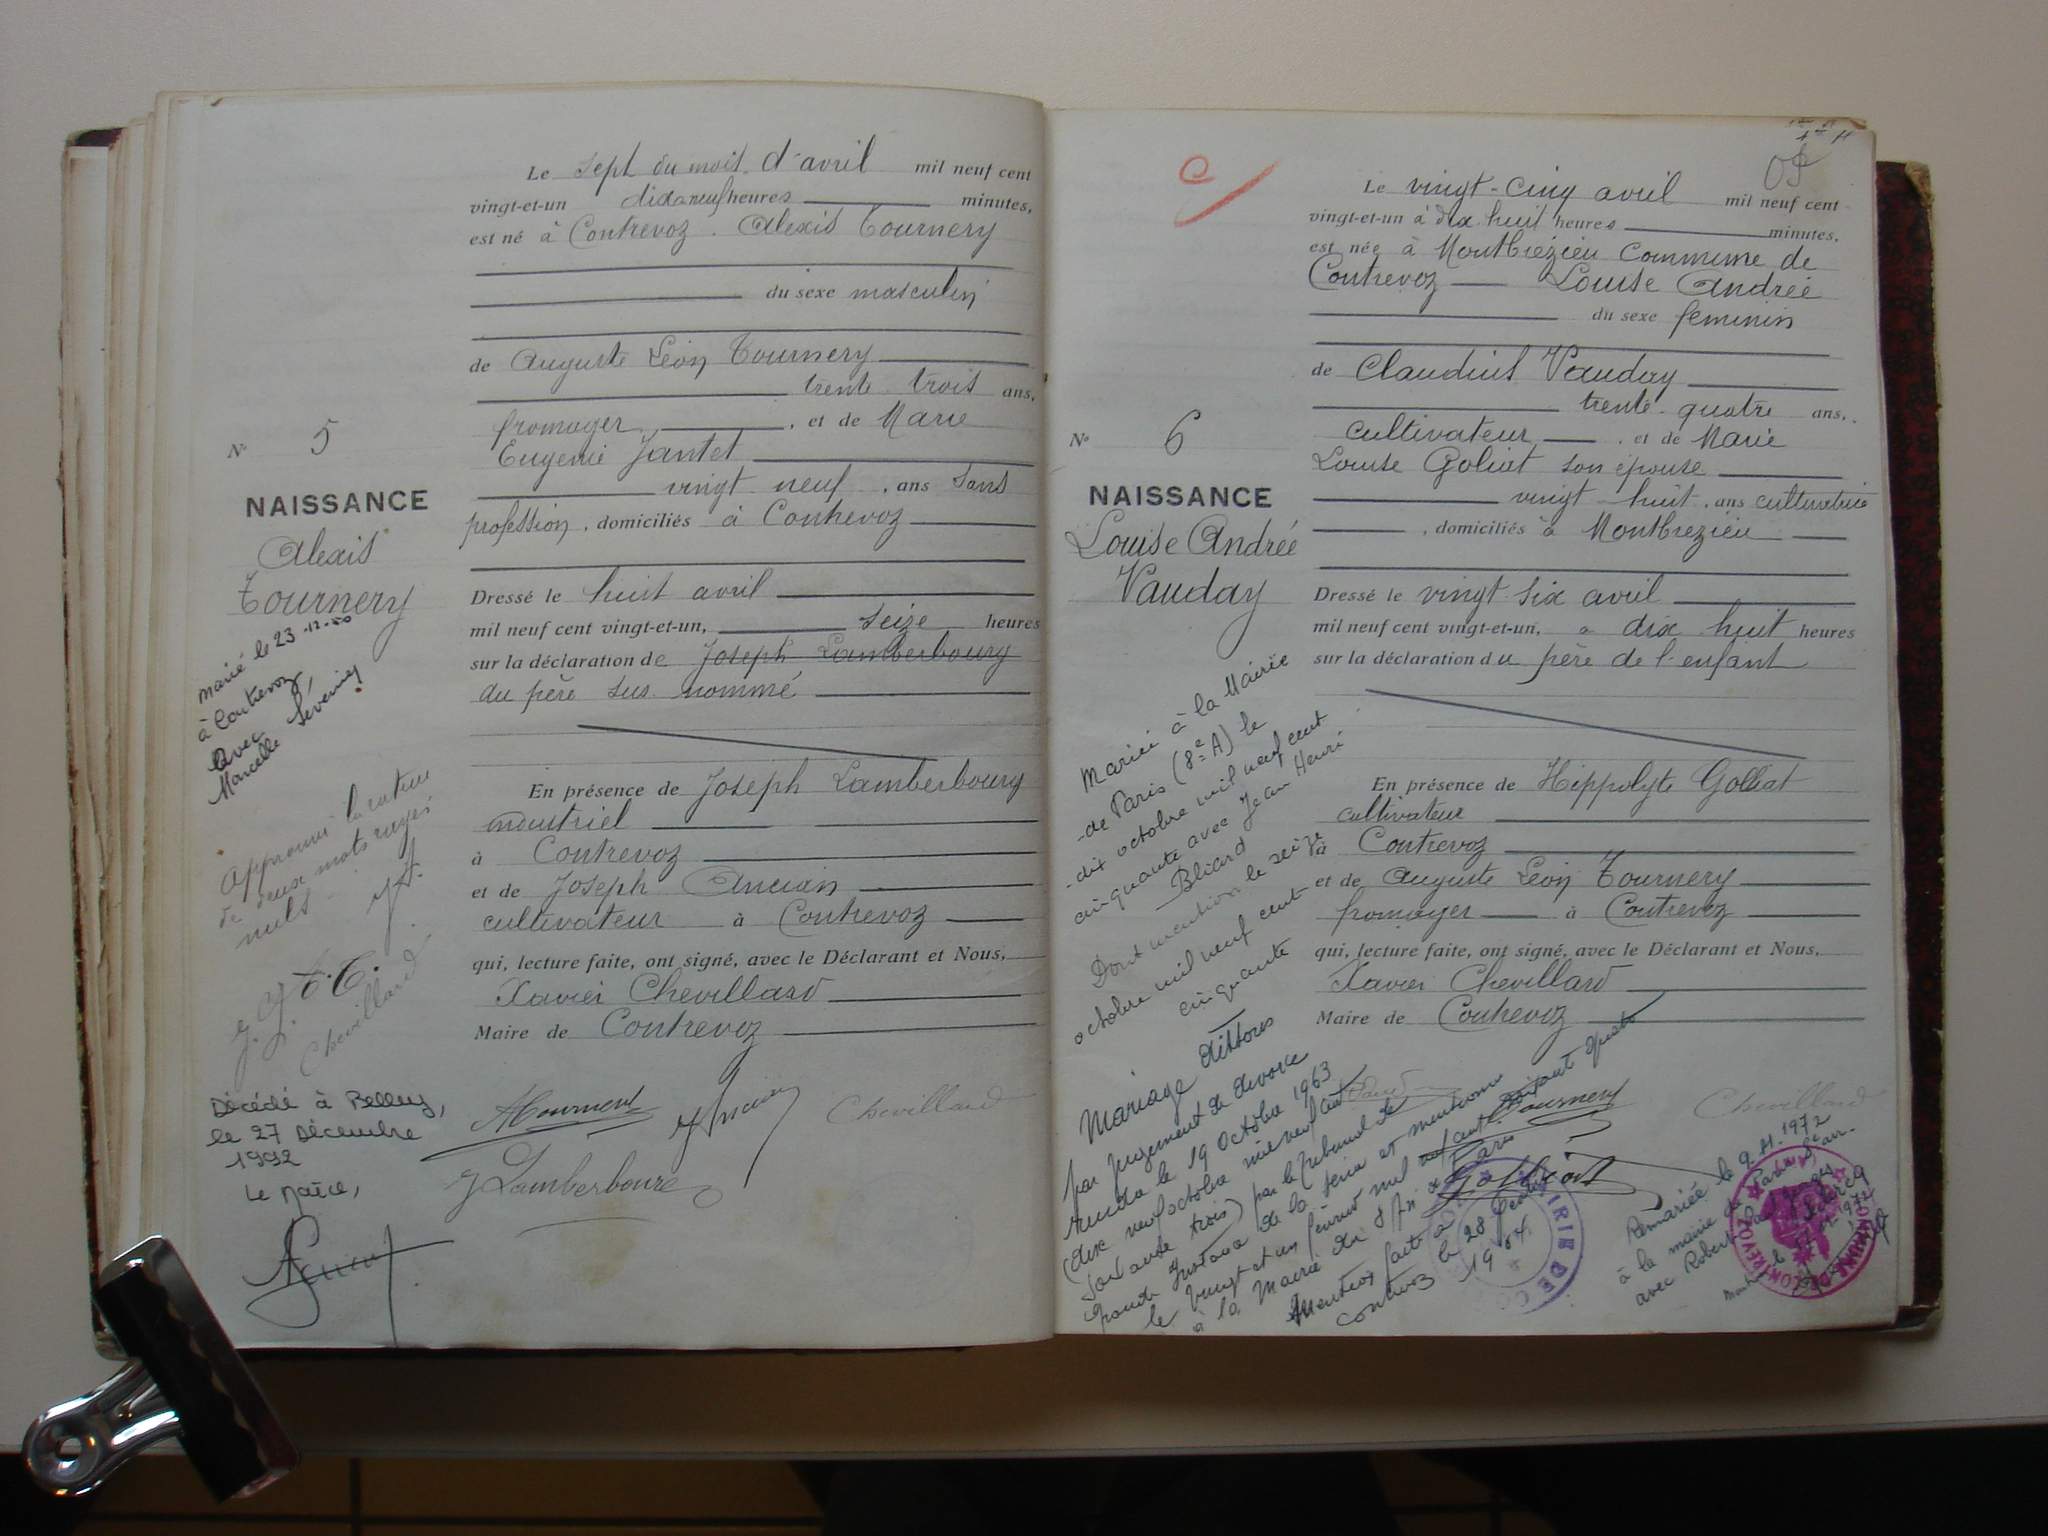 Le sept du mois d'avril mil neuf cent
vingt-et-un dixneuf heures minutes,
est né à Contrevoz. Alexis Tournery
du sexe masculin
de Auguste Léon Tournery
trente trois ans,
fromager, et de Marie
Eugenie Jantet
vingt neuf, ans sans
profession, domiciliés à Contrevoz
N° 5
NAISSANCE
Alexis
Tournery
Dressé le huit avril
mil neuf cent vingt-et-un, seize heures
sur la déclaration de Joseph Lamberbourg
du père sus nommé
En présence de Joseph Lamberbourg
industriel
à Contrevoz
et de Joseph Ancian
cultivateur à Contrevoz
qui, lecture faite, ont signé, avec le Déclarant et Nous,
Xavier Chevillard
Maire de Contrevoz
Marié le 23-12-50
à Contrevoz,
Avec
Marcelle
Approuvé la rature
de deux mots rayés
nuls
Chevillard
Décédé à Belley,
le 27 Décembre
1992
Le Maire,
Chevillard
Le vingt-cinq avril mil neuf cent
vingt-et-un à dix huit heures minutes,
est née à Montbrezieu Commune de
Contrevoz Louise Andrée
du sexe feminin
de Claudius Vauday
trente quatre ans,
cultivateur, et de Marie
Louise Goliat son épouse
vingt huit, ans cultivatrice
, domiciliés à Montbrezieu
N° 6
NAISSANCE
Louise Andrée
Vauday
Dressé le vingt six avril
mil neuf cent vingt-et-un, à dix huit heures
sur la déclaration du père de l'enfant
En présence de Hippolyte Golliat
cultivateur
à Contrevoz
et de Auguste Léon Tournery
fromager à Contrevoz
qui, lecture faite, ont signé, avec le Déclarant et Nous,
Xavier Chevillard
Maire de Contrevoz
Mariée à la Mairie
de Paris (8e A) le
dix octobre mil neuf cent
cinquante avec Jean Henri
Bliard
Dont mention le seize
octobre mil neuf cent
cinquante
Mariage dissous
par jugement de divorce
rendu le 19 Octobre 1963
(dix neuf octobre mil neuf cent
soixante trois) par le tribunal de
grande instance de la Seine et mention
le vingt et un février mil neuf cent soixante quatre
à la Mairie du 8e A de Paris
Mention faite à
Contrevoz le 28 février
1964
Chevillard
Remariée le 9.11.1972
à la mairie de Paris
avec Robert
MAIRIE DE CO
COMMUNE DE CONTREVOZ